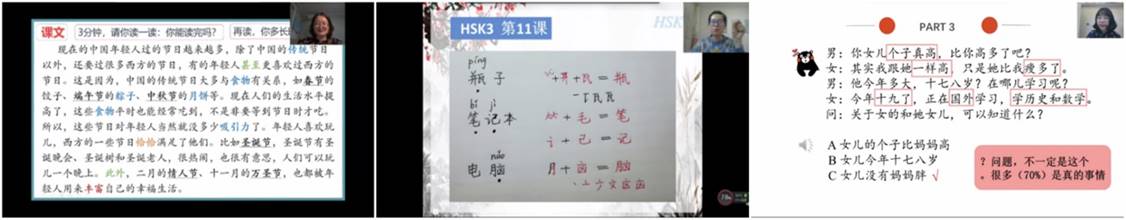 课文 3分钟，请你读一读：你能读完吗？ 再读，你多长
现在的中国年轻人过的节日越来越多，除了中国的传统节日
以外，还要过很多西方的节日，有的年轻人甚至更喜欢过西方的
节日。这是因为，中国的传统节日大多与食物有关系，如春节的
饺子、端午节的粽子、中秋节的月饼等。现在人们的生活水平提
高了，这些食物平时也能经常吃到，不是非要等到节日时才吃。
所以，这些节日对年轻人当然就没多少吸引力了。年轻人喜欢玩
儿，西方的一些节日恰恰满足了他们。比如圣诞节，圣诞节有圣
诞晚会、圣诞树和圣诞老人，很热闹，也很有意思，人们可以玩
儿一个晚上。此外，二月的情人节、十一月的万圣节，也都被年
轻人用来丰富自己的幸福生活。
HSK3 第11课
HSK
píng
瓶子 并+瓦=瓶
bǐ jì
笔记本 毛=笔
讠+己=记
nǎo
电脑 月+㐫=脑
PART 3
男：你女儿个子真高，比你高多了吧？
女：其实我跟她一样高，只是她比我瘦多了。
男：她今年多大，十七八岁？在哪儿学习呢？
女：今年十九了，正在国外学习，学历史和数学。
问：关于女的和她女儿，可以知道什么？
A 女儿的个子比妈妈高
B 女儿今年十七八岁
C 女儿没有妈妈胖 √
？问题，不一定是这个
。很多（70%）是真的事情